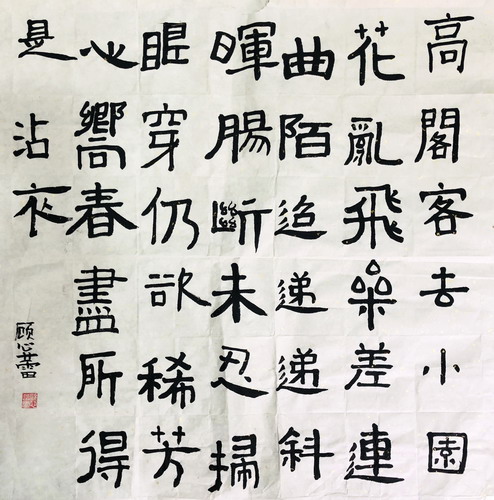 高閣客去小園
花亂飛叅差連
曲陌迢遞遞斜
暉腸斷未忍掃
眼穿仍欲稀芳
心嚮春盡所得
是沾衣
顾心蕾